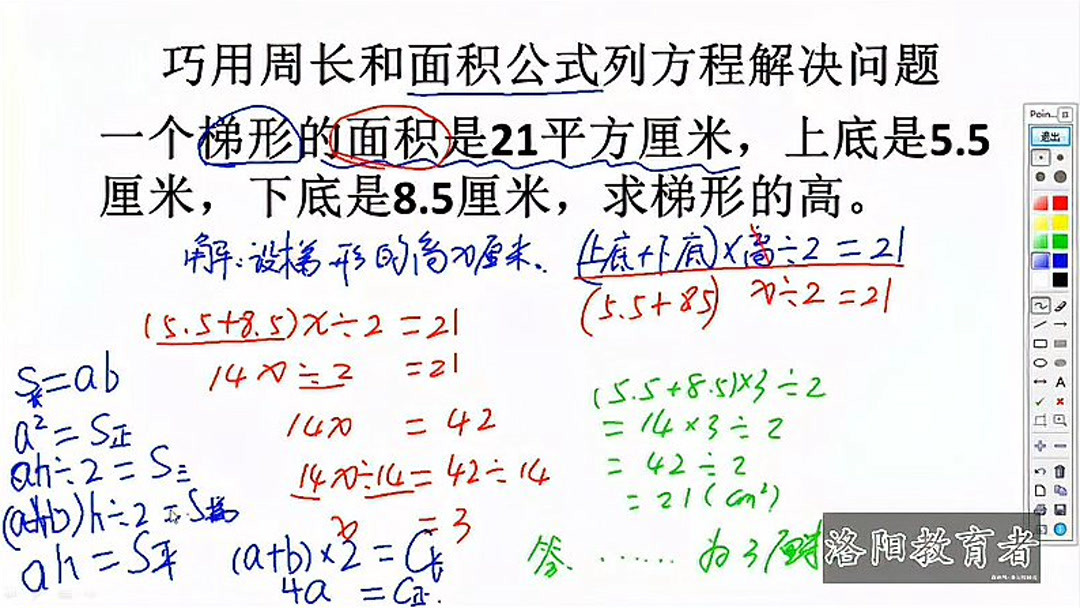 巧用周长和面积公式列方程解决问题
一个梯形的面积是21平方厘米，上底是5.5
厘米，下底是8.5厘米，求梯形的高。
解：设梯形的高为x厘米．
(上底+下底)×高÷2=21
(5.5+85) x÷2=21
(5.5+8.5)x÷2=21
14x÷2=21
14x=42
14x÷14=42÷14
x=3
S长=ab
a²=S正
ah÷2=S三
(a+b)h÷2=S梯
ah=S平
(a+b)×2=C长
4a=C正.
(5.5+8.5)×3÷2
=14×3÷2
=42÷2
=21(cm²)
答、……为3厘米
Poin...
退出
A
洛阳教育者